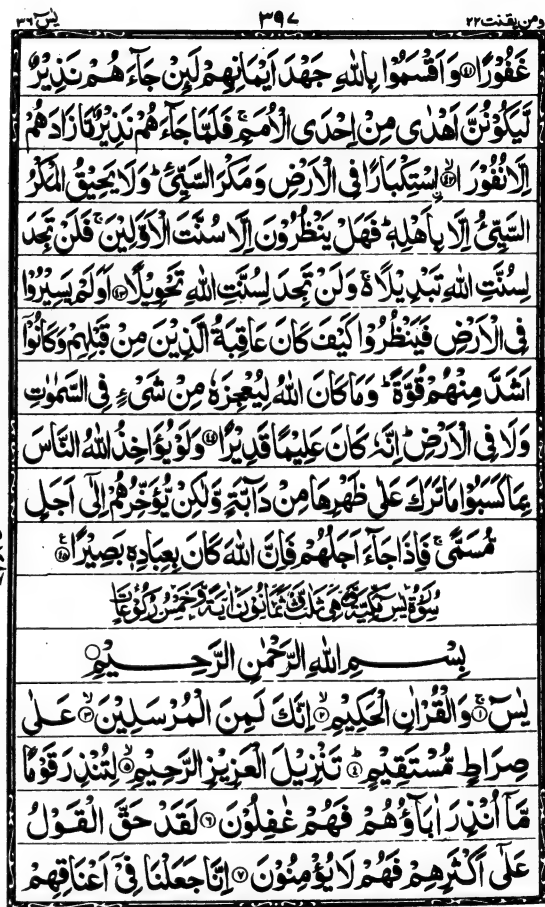 ومن يقنت ٢٢ ٣٩٧ يٰسٓ ٣٦
غَفُوْرًا ۝٤١ وَاَقْسَمُوْا بِاللّٰهِ جَهْدَ اَيْمَانِهِمْ لَئِنْ جَآءَهُمْ نَذِيْرٌ
لَّيَكُوْنُنَّ اَهْدٰى مِنْ اِحْدَى الْاُمَمِ ۚ فَلَمَّا جَآءَهُمْ نَذِيْرٌ مَّا زَادَهُمْ
اِلَّا نُفُوْرًا ۝٤٢ۙ اسْتِكْبَارًا فِى الْاَرْضِ وَمَكْرَ السَّيِّئِ ؕ وَلَا يَحِيْقُ الْمَكْرُ
السَّيِّئُ اِلَّا بِاَهْلِهٖ ؕ فَهَلْ يَنْظُرُوْنَ اِلَّا سُنَّتَ الْاَوَّلِيْنَ ۚ فَلَنْ تَجِدَ
لِسُنَّتِ اللّٰهِ تَبْدِيْلًا ۚ۬ وَلَنْ تَجِدَ لِسُنَّتِ اللّٰهِ تَحْوِيْلًا ۝٤٣ اَوَلَمْ يَسِيْرُوْا
فِى الْاَرْضِ فَيَنْظُرُوْا كَيْفَ كَانَ عَاقِبَةُ الَّذِيْنَ مِنْ قَبْلِهِمْ وَكَانُوْۤا
اَشَدَّ مِنْهُمْ قُوَّةً ؕ وَمَا كَانَ اللّٰهُ لِيُعْجِزَهٗ مِنْ شَىْءٍ فِى السَّمٰوٰتِ
وَلَا فِى الْاَرْضِ ؕ اِنَّهٗ كَانَ عَلِيْمًا قَدِيْرًا ۝٤٤ وَلَوْ يُؤَاخِذُ اللّٰهُ النَّاسَ
بِمَا كَسَبُوْا مَا تَرَكَ عَلٰى ظَهْرِهَا مِنْ دَآبَّةٍ وَّلٰكِنْ يُّؤَخِّرُهُمْ اِلٰٓى اَجَلٍ
مُّسَمًّى ۚ فَاِذَا جَآءَ اَجَلُهُمْ فَاِنَّ اللّٰهَ كَانَ بِعِبَادِهٖ بَصِيْرًا ۝٤٥
سُوْرَةُ يٰسٓ مَكِّيَّةٌ وَّهِىَ ثَلٰثٌ وَّثَمَانُوْنَ اٰيَةً وَّخَمْسُ رُكُوْعَاتٍ
بِسْمِ اللّٰهِ الرَّحْمٰنِ الرَّحِيْمِ
يٰسٓ ۝١ۚ وَالْقُرْاٰنِ الْحَكِيْمِ ۝٢ۙ اِنَّكَ لَمِنَ الْمُرْسَلِيْنَ ۝٣ۙ عَلٰى
صِرَاطٍ مُّسْتَقِيْمٍ ۝٤ؕ تَنْزِيْلَ الْعَزِيْزِ الرَّحِيْمِ ۝٥ۙ لِتُنْذِرَ قَوْمًا
مَّاۤ اُنْذِرَ اٰبَآؤُهُمْ فَهُمْ غٰفِلُوْنَ ۝٦ لَقَدْ حَقَّ الْقَوْلُ
عَلٰٓى اَكْثَرِهِمْ فَهُمْ لَا يُؤْمِنُوْنَ ۝٧ اِنَّا جَعَلْنَا فِىْۤ اَعْنَاقِهِمْ